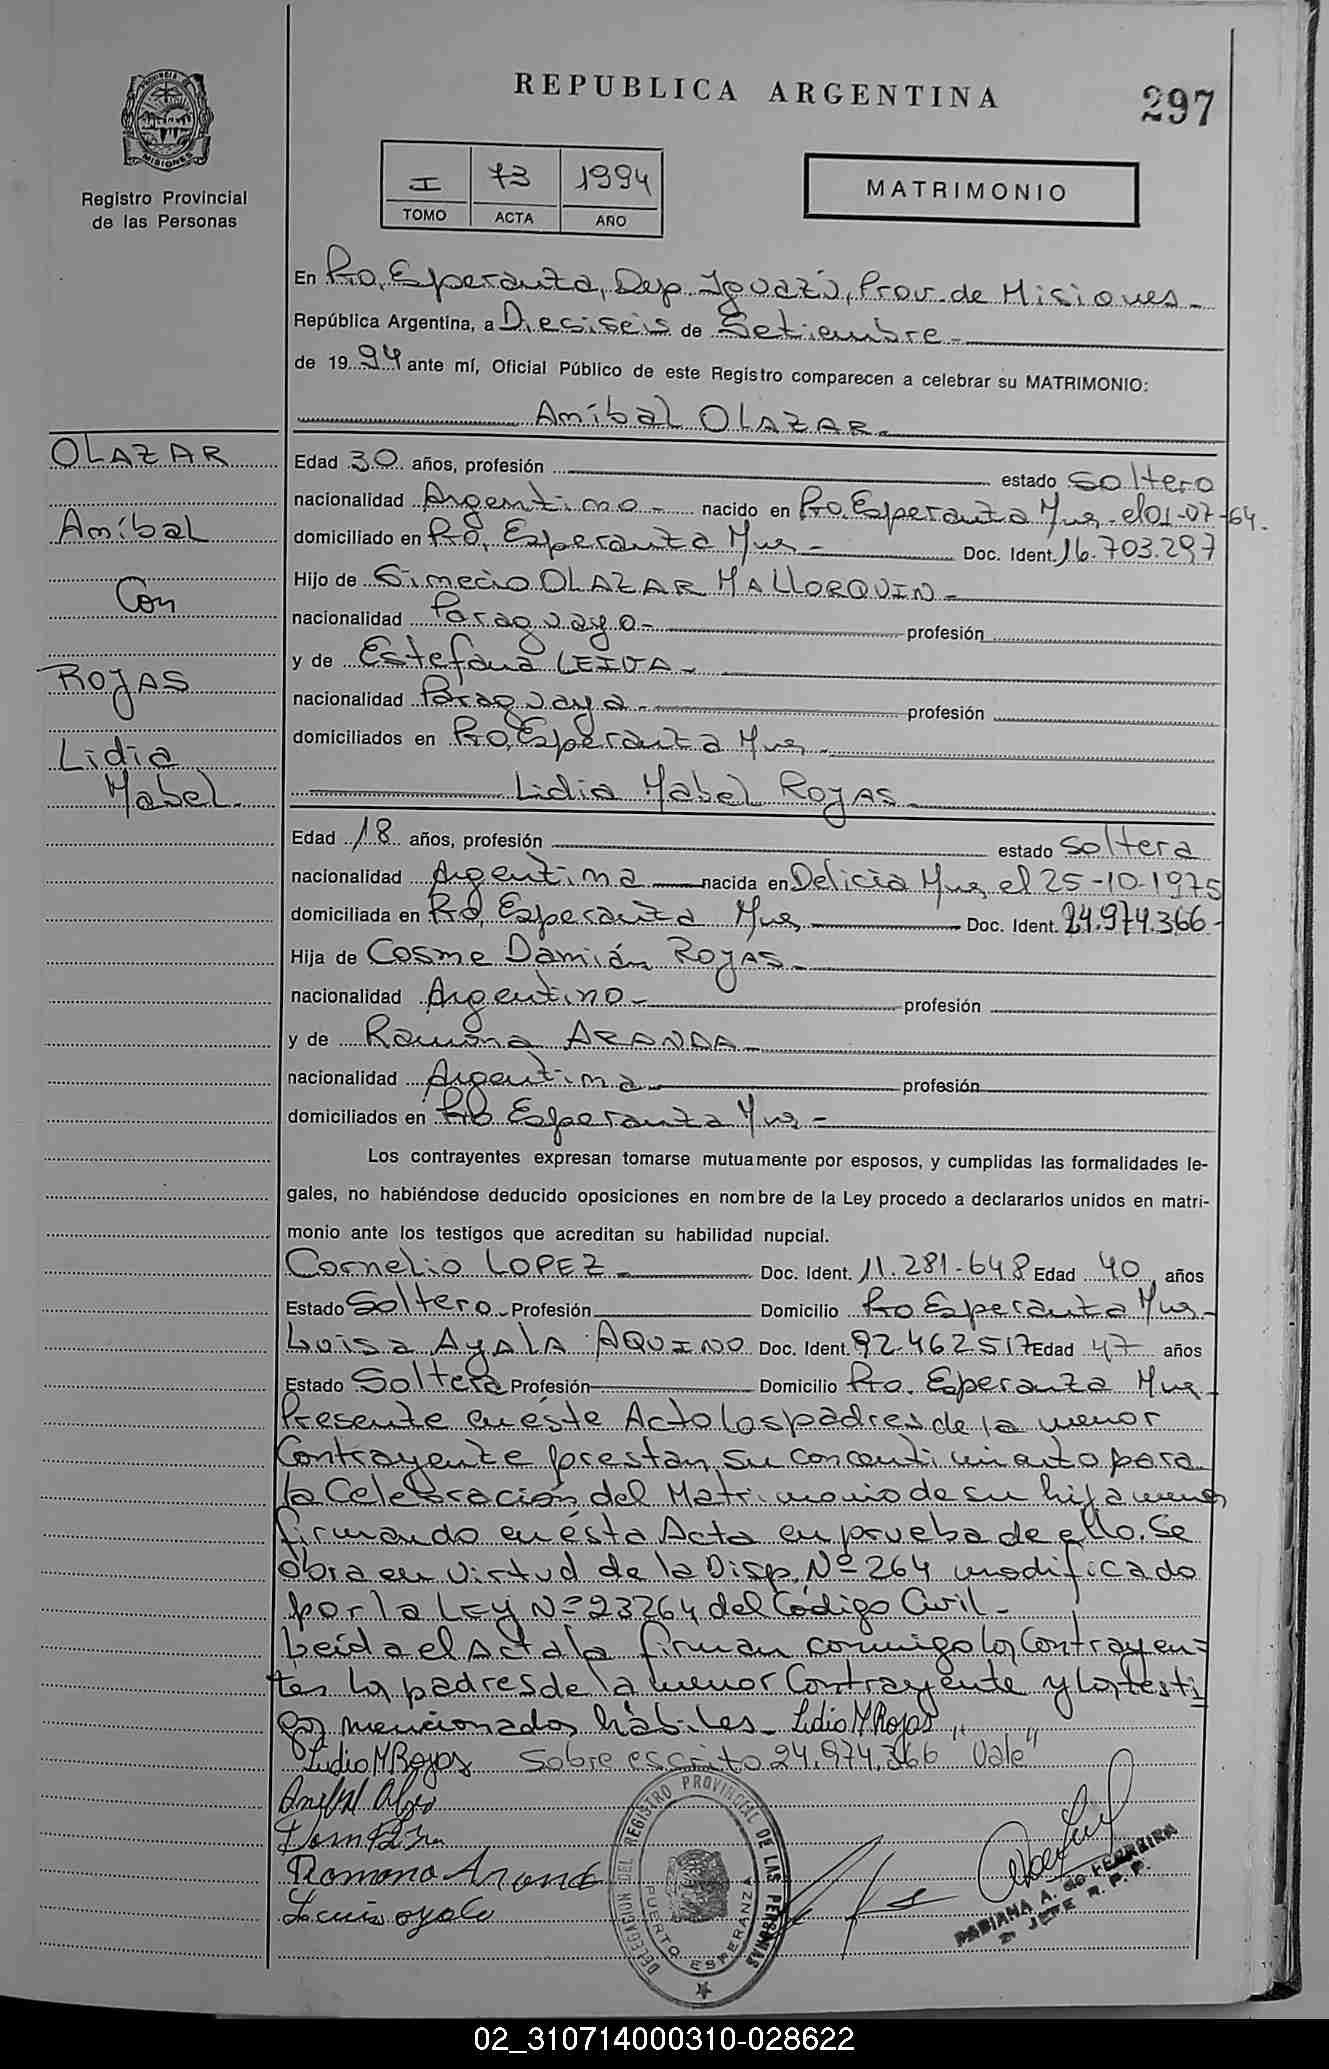 REPUBLICA ARGENTINA
297
PROVINCIA DE
MISIONES
Registro Provincial
de las Personas
I 73 1994
TOMO ACTA AÑO
MATRIMONIO
En Pto. Esperanza, Dep. Iguazú, Prov. de Misiones -
República Argentina, a Dieciseis de Setiembre -
de 1994 ante mí, Oficial Público de este Registro comparecen a celebrar su MATRIMONIO:
Aníbal OLAZAR -
OLAZAR
Aníbal
Con
ROJAS
Lidia
Mabel.
Edad 30 años, profesión estado Soltero
nacionalidad Argentino - nacido en Pto. Esperanza Mnes. el 01-07-64.
domiciliado en Pto. Esperanza Mnes - Doc. Ident. 16.703.297
Hijo de OLAZAR MALLORQUIN -
nacionalidad Paraguayo - profesión
y de Estefana LEIVA -
nacionalidad Paraguaya - profesión
domiciliados en Pto. Esperanza Mnes -
Lidia Mabel ROJAS -
Edad 18 años, profesión estado Soltera
nacionalidad Argentina nacida en Delicia Mnes el 25-10-1975
domiciliada en Pto. Esperanza Mnes Doc. Ident. 24.974.366 -
Hija de Cosme Damián ROJAS -
nacionalidad Argentino - profesión
y de Ramona ARANDA -
nacionalidad Argentina - profesión
domiciliados en Pto Esperanza Mnes -
Los contrayentes expresan tomarse mutuamente por esposos, y cumplidas las formalidades le-
gales, no habiéndose deducido oposiciones en nombre de la Ley procedo a declararlos unidos en matri-
monio ante los testigos que acreditan su habilidad nupcial.
Cornelio LOPEZ - Doc. Ident. 11.281.648 Edad 40 años
Estado Soltero - Profesión Domicilio Pto Esperanza Mnes -
Luisa AyALA AQUINO Doc. Ident. 92.462.517 Edad 47 años
Estado Soltera Profesión Domicilio Pto. Esperanza Mnes -
Presente en éste Acto los padres de la menor
Contrayente prestan su concentimiento para
la Celebración del Matrimonio de su hija menor
firmando en ésta Acta en prueba de ello. Se
obra en virtud de la Disp. Nº 264 modificado
por la LEy Nº 23264 del Código Civil -
Leída el Acta la firman conmigo los Contrayen=
tes los padres de la menor Contrayente y los testi=
gos mencionados hábiles - Lidia M Rojas
Lidia M Rojas Sobre escrito 24.974.366 "Vale"
Ramona Aranda
Luisa ayala
DELEGACION DEL REGISTRO PROVINCIAL DE LAS PERSONAS
PUERTO ESPERANZA
FABIANA A. de FERREIRA
JEFE R. P. P.
02_310714000310-028622